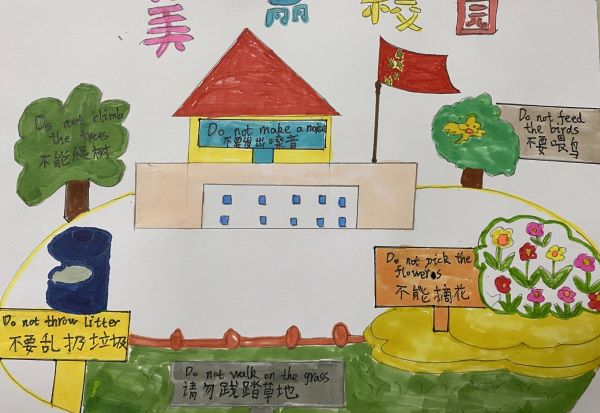 美丽校园
Do not climb
the trees
不能爬树
Do not make a noise
不要发出噪音
Do not feed
the birds
不要喂鸟
Do not pick the
flowers
不能摘花
Do not throw litter
不要乱扔垃圾
Do not walk on the grass
请勿践踏草地